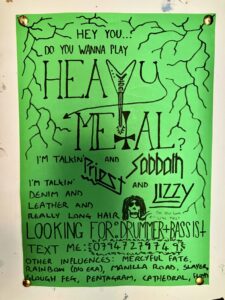 HEY YOU...
DO YOU WANNA PLAY
HEAVY
METAL?
I'M TALKIN' Priest AND Sabbath
AND Lizzy
I'M TALKIN'
DENIM AND
LEATHER AND
REALLY LONG HAIR
LOOKING FOR: DRUMMER + BASSIST
TEXT ME:
OTHER INFLUENCES: MERCYFUL FATE,
RAINBOW (DIO ERA), MANILLA ROAD, SLAYER,
SLOUGH FEG, PENTAGRAM, CATHEDRAL,